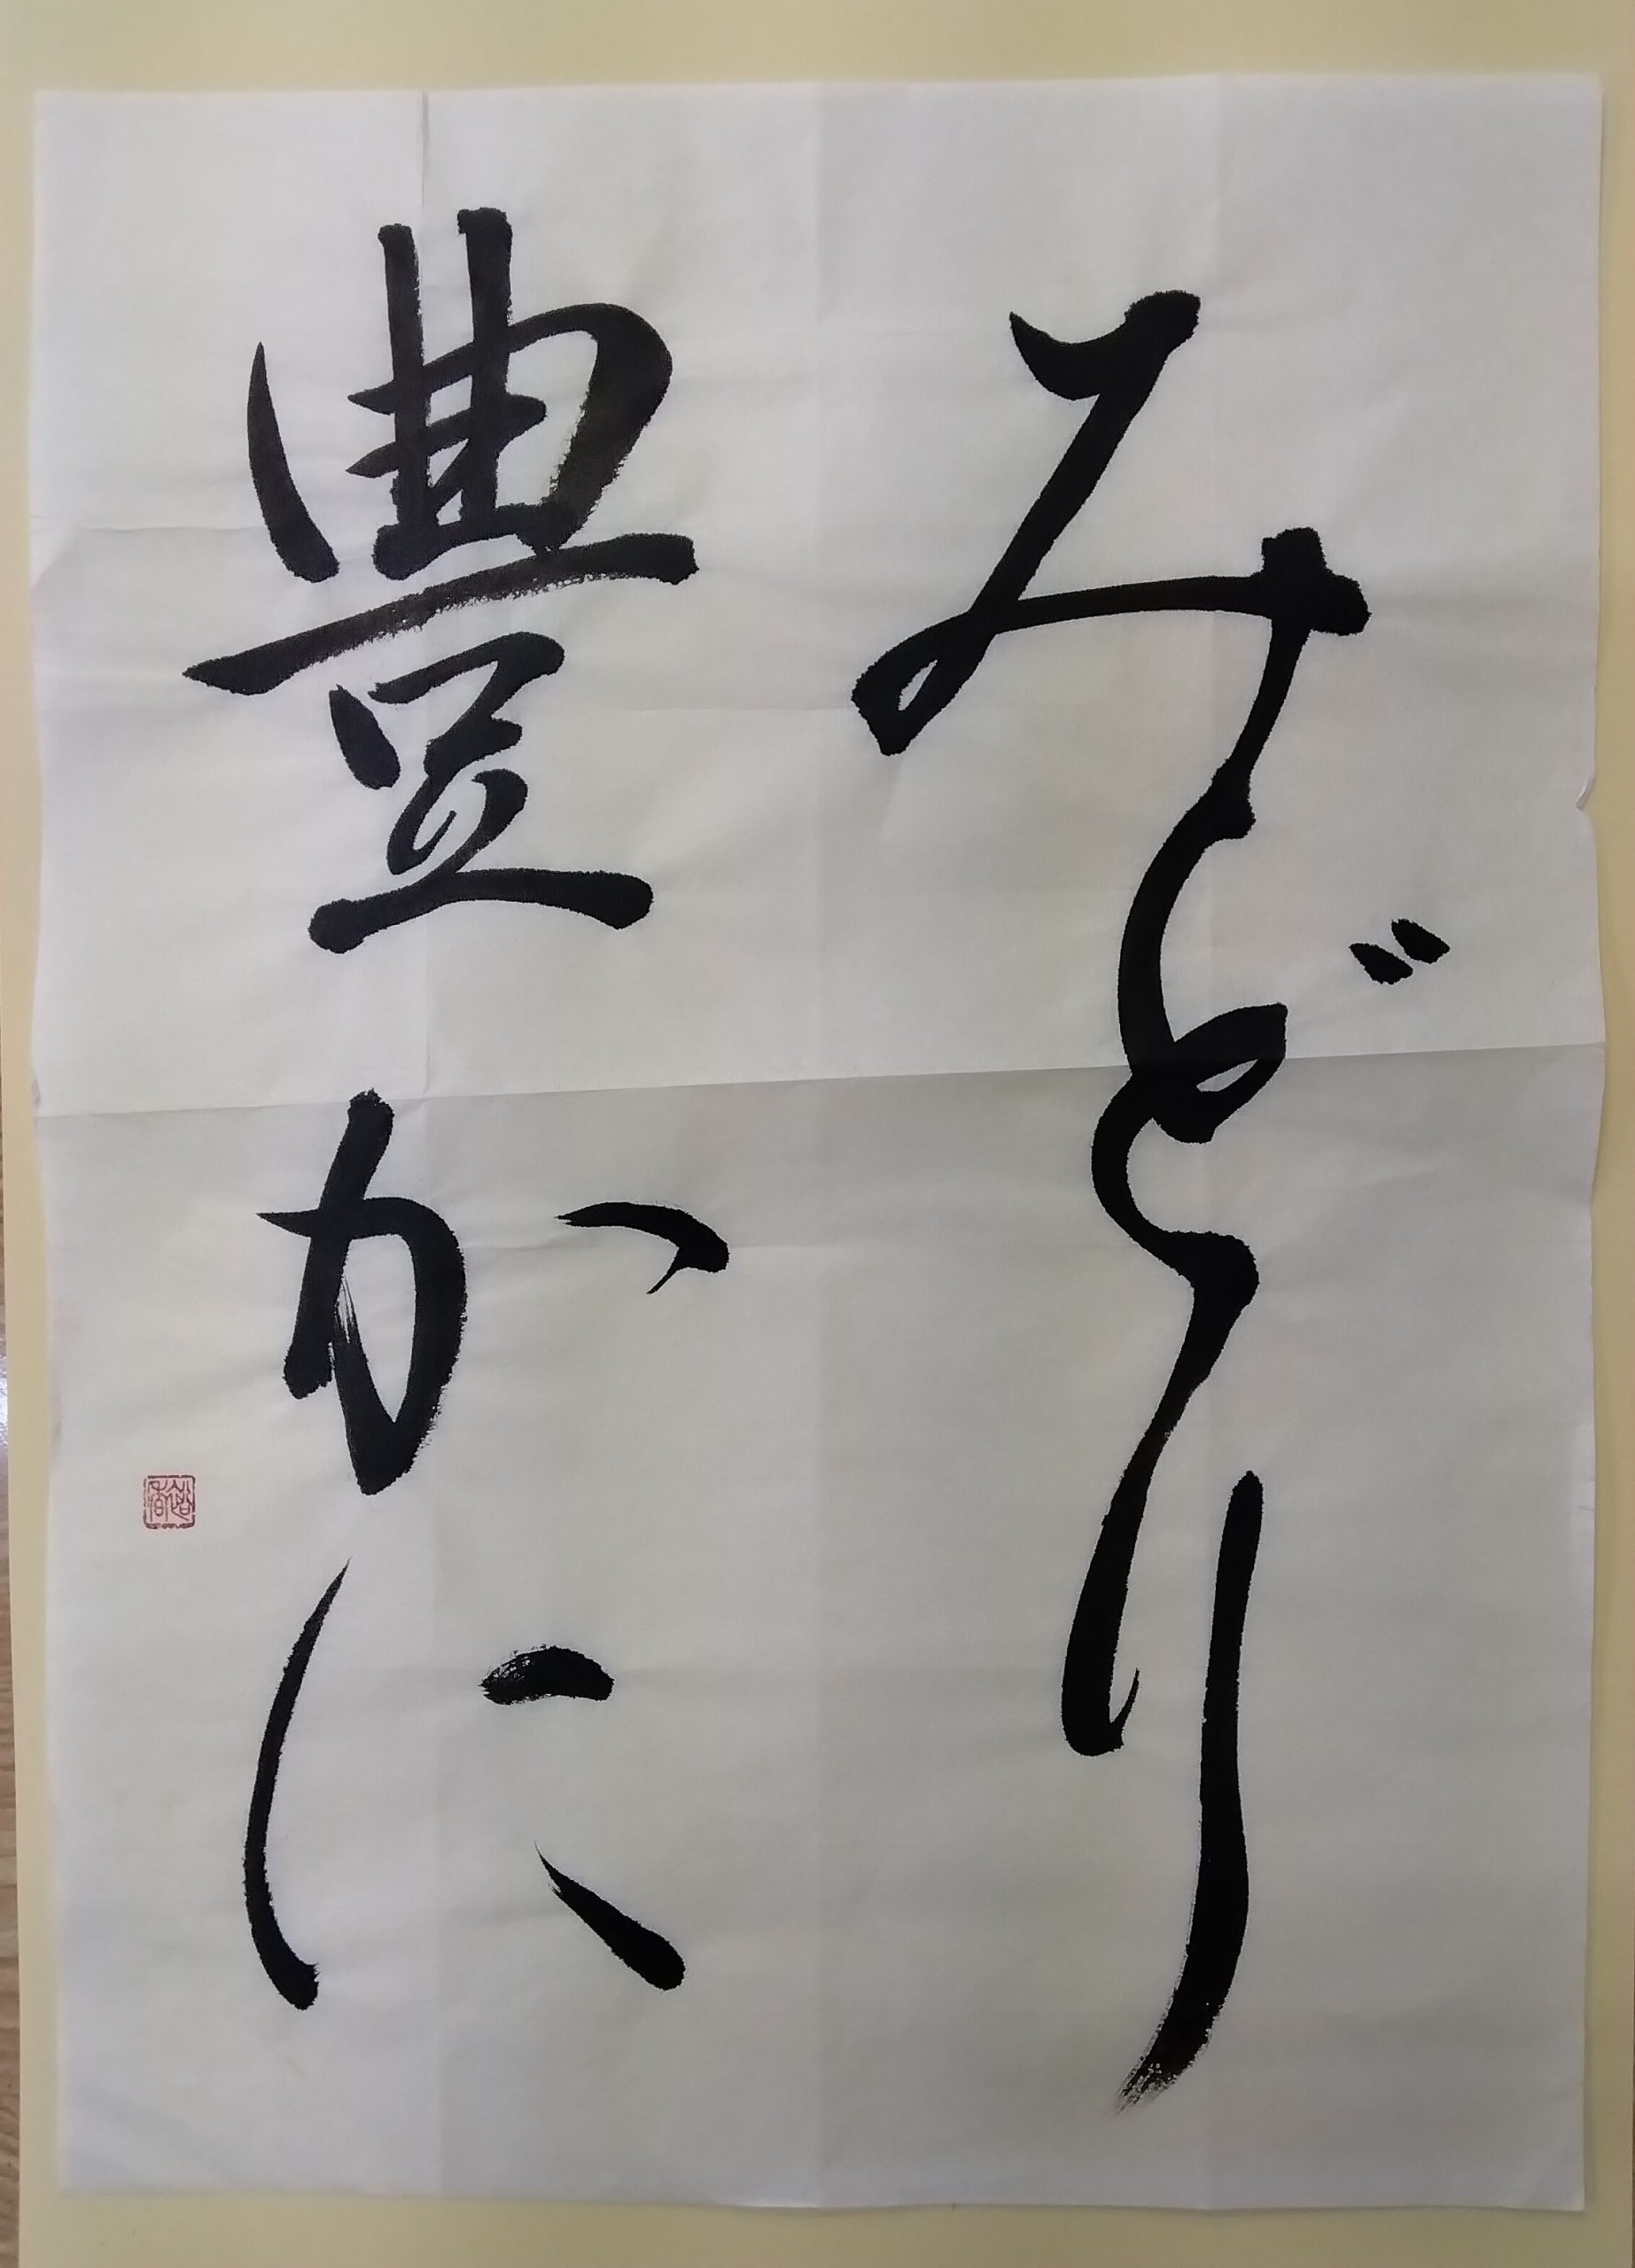 みどり
豊かに